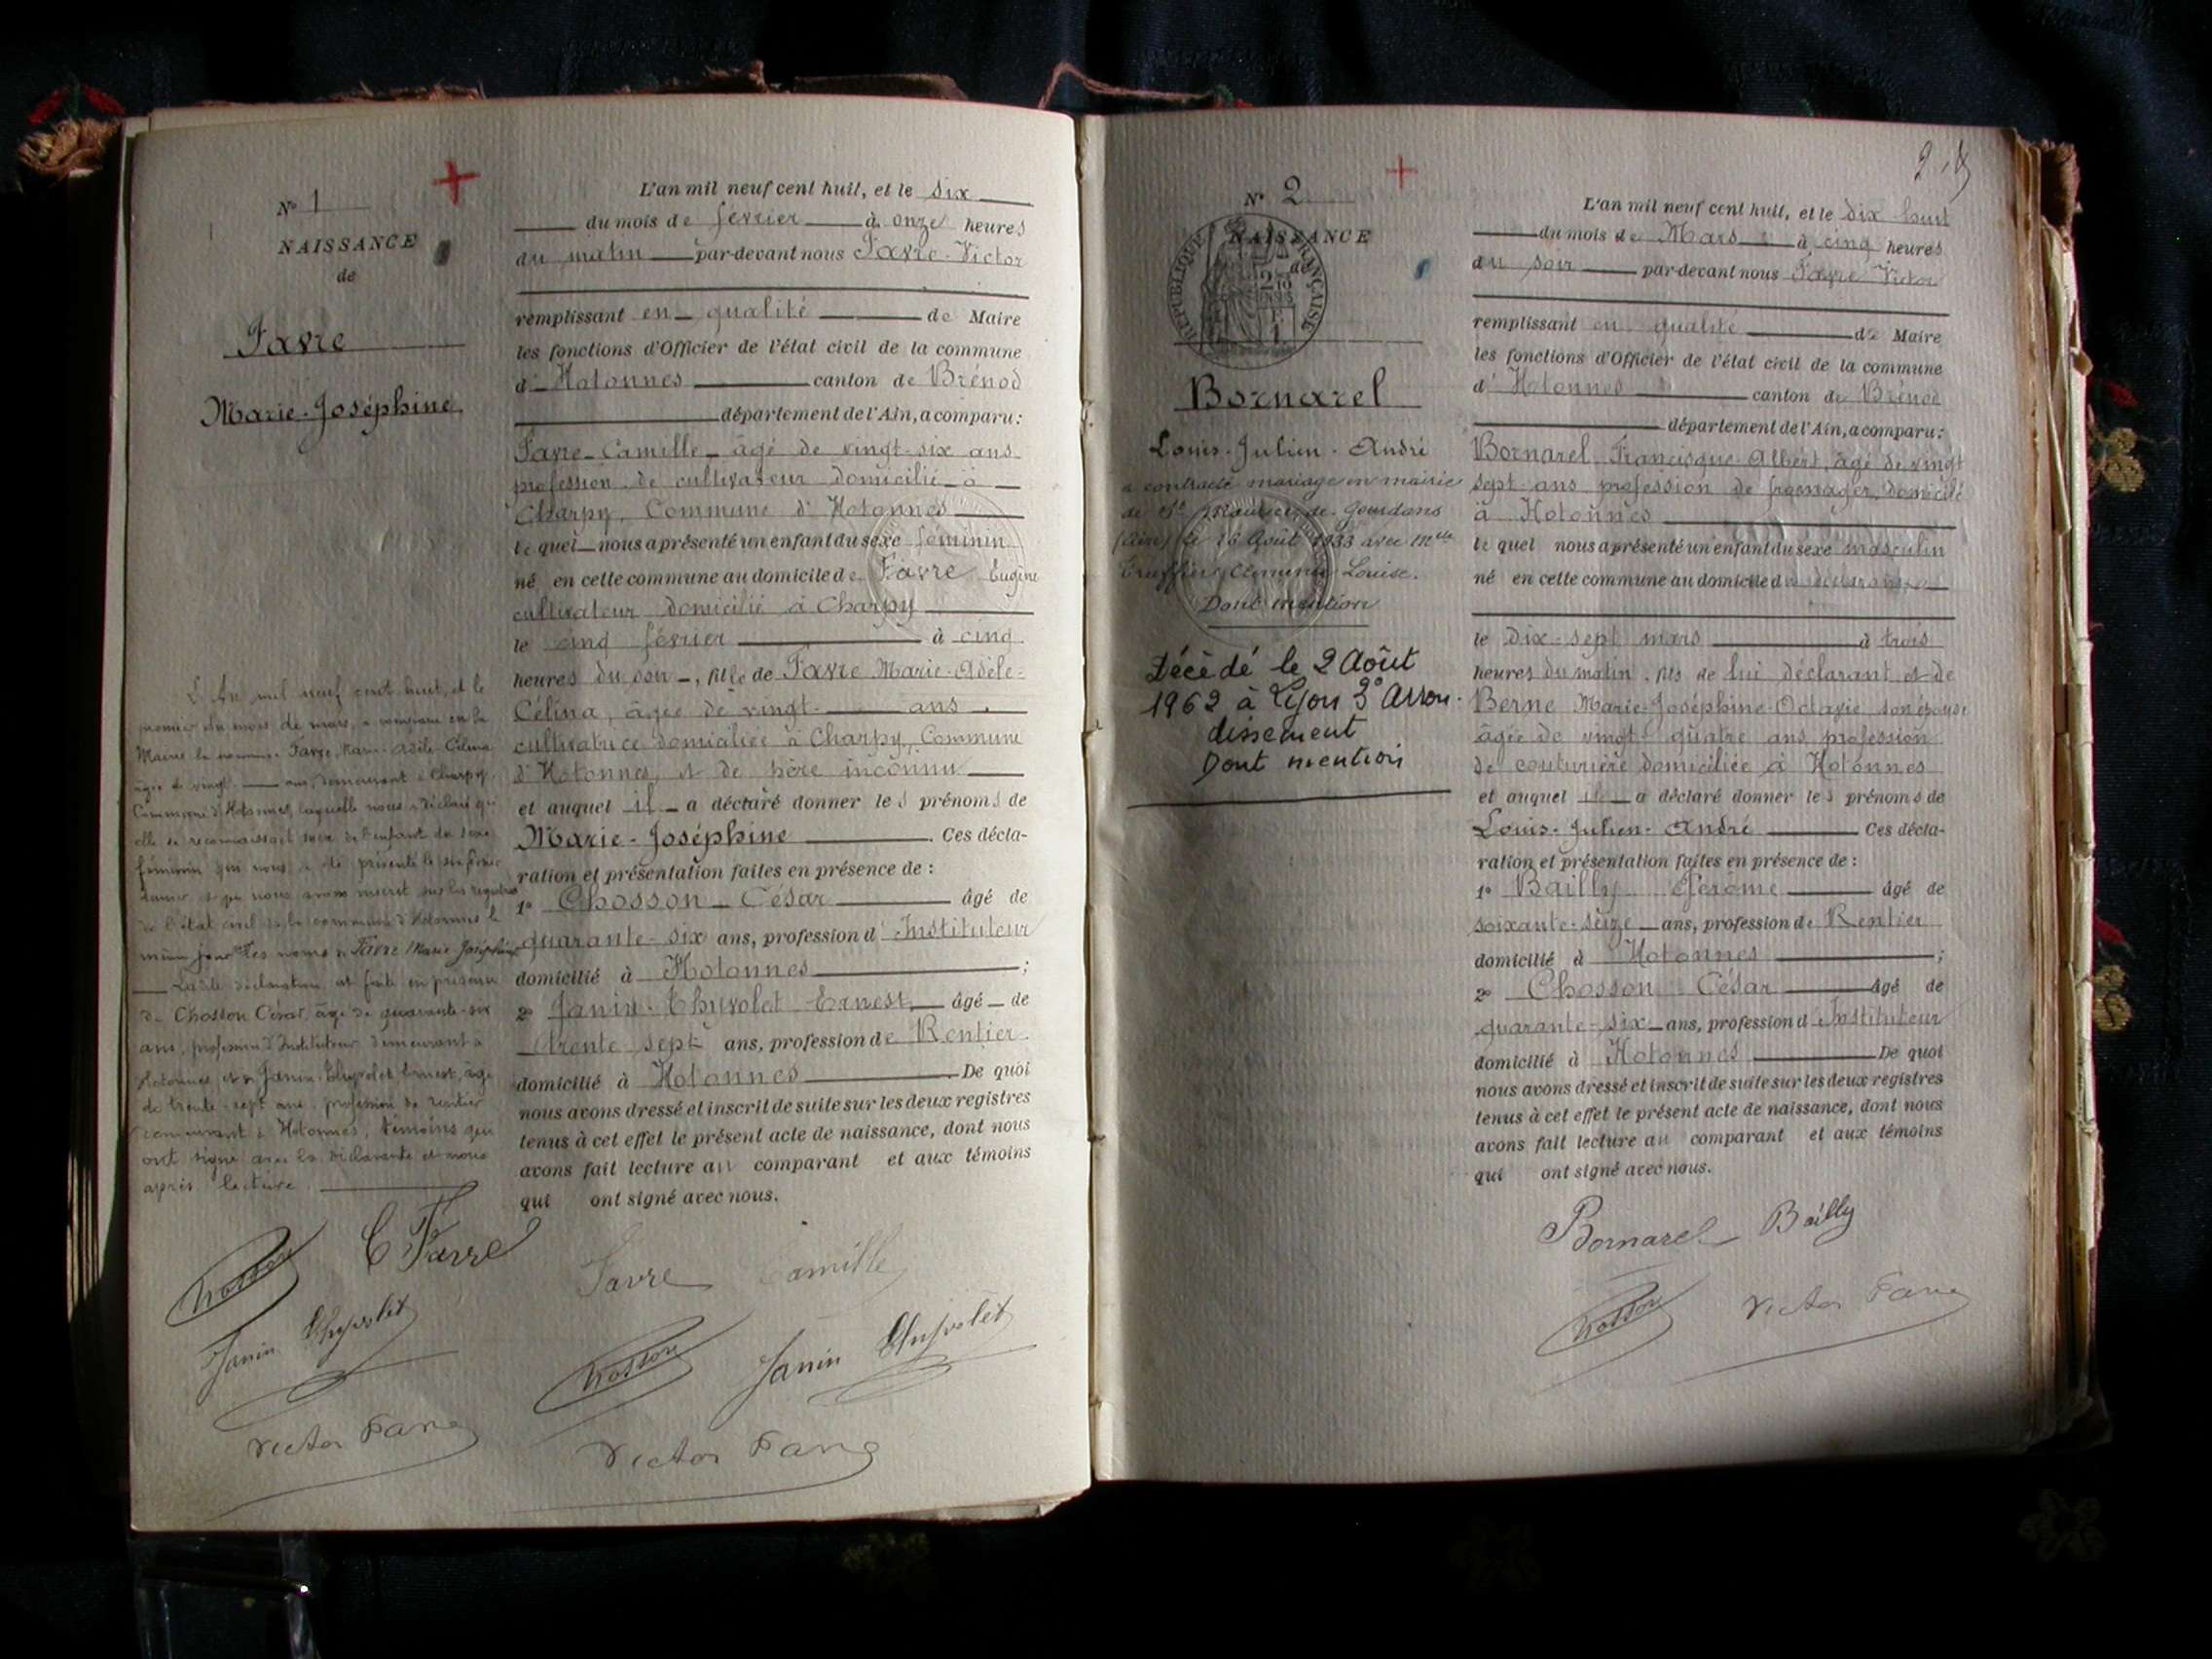 N° 1
NAISSANCE
de
Favre
Marie-Joséphine
L'An mil neuf cent huit, et le
premier du mois de mars, a comparu en la
Mairie la nommée Favre, Marie-Adèle-Célina
âgée de vingt ans, demeurant à Charpy,
Commune d'Hotonnes, laquelle nous a déclaré qu'
elle se reconnaissait mère de l'enfant du sexe
féminin qui nous a été présenté le six février
dernier et que nous avons inscrit sur les registres
de l'état civil de la commune d'Hotonnes le
même jour les noms de Favre Marie Joséphine
Ladite déclaration est faite en présence
de Chosson César, âgé de quarante-six
ans, profession d'Instituteur demeurant à
Hotonnes et de Janin-Thyvolet Ernest, âgé
de trente-sept ans, profession de rentier
demeurant à Hotonnes, témoins qui
ont signé avec la déclarante et nous
après lecture.
C Favre
Chosson
Janin Thyvolet
Victor Favre
L'an mil neuf cent huit, et le six
du mois de février à onze heures
du matin par-devant nous Favre-Victor
remplissant en qualité de Maire
les fonctions d'Officier de l'état civil de la commune
d' Hotonnes canton de Brénod
département de l'Ain, a comparu :
Favre-Camille âgé de vingt-six ans
profession de cultivateur domicilié à
Charpy, Commune d'Hotonnes
lequel nous a présenté un enfant du sexe féminin
né en cette commune au domicile de Favre Eugène
cultivateur domicilié à Charpy
le cinq février à cinq
heures du soir, fille de Favre Marie-Adèle-
Célina, âgée de vingt ans
cultivatrice domiciliée à Charpy, Commune
d'Hotonnes, et de père inconnu
et auquel il a déclaré donner les prénoms de
Marie-Joséphine. Ces décla-
ration et présentation faites en présence de :
1° Chosson César âgé de
quarante-six ans, profession d'Instituteur
domicilié à Hotonnes ;
2° Janin-Thyvolet Ernest, âgé de
trente sept ans, profession de Rentier
domicilié à Hotonnes. De quoi
nous avons dressé et inscrit de suite sur les deux registres
tenus à cet effet le présent acte de naissance, dont nous
avons fait lecture au comparant et aux témoins
qui ont signé avec nous.
Favre Camille
Chosson Janin Thyvolet
Victor Favre
N° 2
NAISSANCE
de
RÉPUBLIQUE FRANÇAISE
Bornarel
Louis-Julien-André
a contracté mariage en mairie
de St Maurice-de-Gourdans
(Ain) le 26 Août 1933 avec Melle
Clémence Louise.
Dont mention
Décédé le 2 Août
1962 à Lyon 3° Arron-
dissement
Dont mention
L'an mil neuf cent huit, et le dix huit
du mois de Mars à cinq heures
du soir par-devant nous Favre Victor
remplissant en qualité de Maire
les fonctions d'Officier de l'état civil de la commune
d' Hotonnes canton de Brénod
département de l'Ain, a comparu :
Bornarel Francisque-Albert, âgé de vingt
sept ans profession de fromager, domicilié
à Hotonnes
lequel nous a présenté un enfant du sexe masculin
né en cette commune au domicile du déclarant
le dix-sept mars à trois
heures du matin, fils de lui déclarant et de
Berne Marie-Joséphine-Octavie son épouse
âgée de vingt-quatre ans profession
de couturière domiciliée à Hotonnes
et auquel il a déclaré donner les prénoms de
Louis-Julien-André Ces décla-
ration et présentation faites en présence de :
1° Bailly Jérôme âgé de
soixante-seize ans, profession de Rentier
domicilié à Hotonnes ;
2° Chosson César âgé de
quarante-six ans, profession d'Instituteur
domicilié à Hotonnes De quoi
nous avons dressé et inscrit de suite sur les deux registres
tenus à cet effet le présent acte de naissance, dont nous
avons fait lecture au comparant et aux témoins
qui ont signé avec nous.
Bornarel Bailly
Chosson Victor Favre